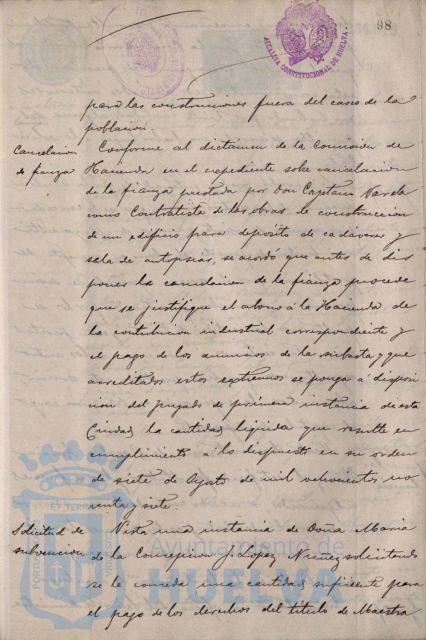 98
ALCALDIA CONSTITUCIONAL DE HUELVA
para las construcciones fuera del casco de la
población.
Cancelacion
de fianza
Conforme al dictamen de la Comision de
Hacienda en el expediente sobre cancelacion
de la fianza prestada por Don Cayetano Varela
como Contratista de las obras de construccion
de un edificio para deposito de cadáveres y
sala de autopsias, se acordó que antes de dis
poner la cancelacion de la fianza procede
que se justifique el abono á la Hacienda de
la contribucion industrial correspondiente y
el pago de los anuncios de la subasta y que
acreditados estos extremos se ponga a disposi
cion del Juzgado de primera instancia de esta
Ciudad la cantidad liquida que resulte en
cumplimiento á lo dispuesto en su orden
de siete de Agosto de mil ochocientos no
venta y siete.
Solicitud de
subvencion
Vista una instancia de Doña Maria
de la Concepcion J. Lopez Nuñez solicitando
se le conceda una cantidad suficiente para
el pago de los derechos del titulo de Maestra
Ayuntamiento de
HUELVA